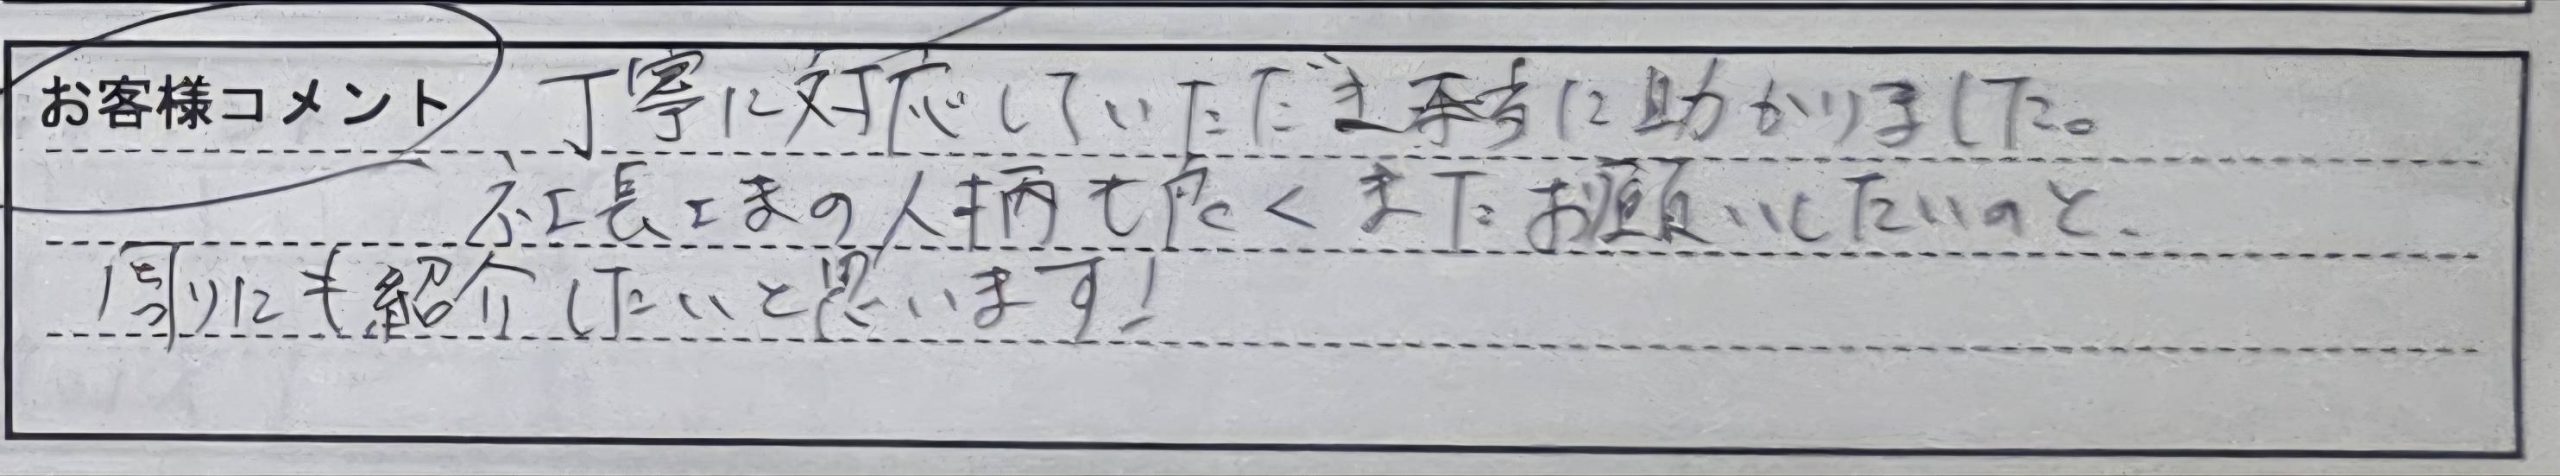 お客様コメント 丁寧に対応していただき本当に助かりました。
社長さまの人柄も良くまたお願いしたいのと、
周りにも紹介したいと思います!